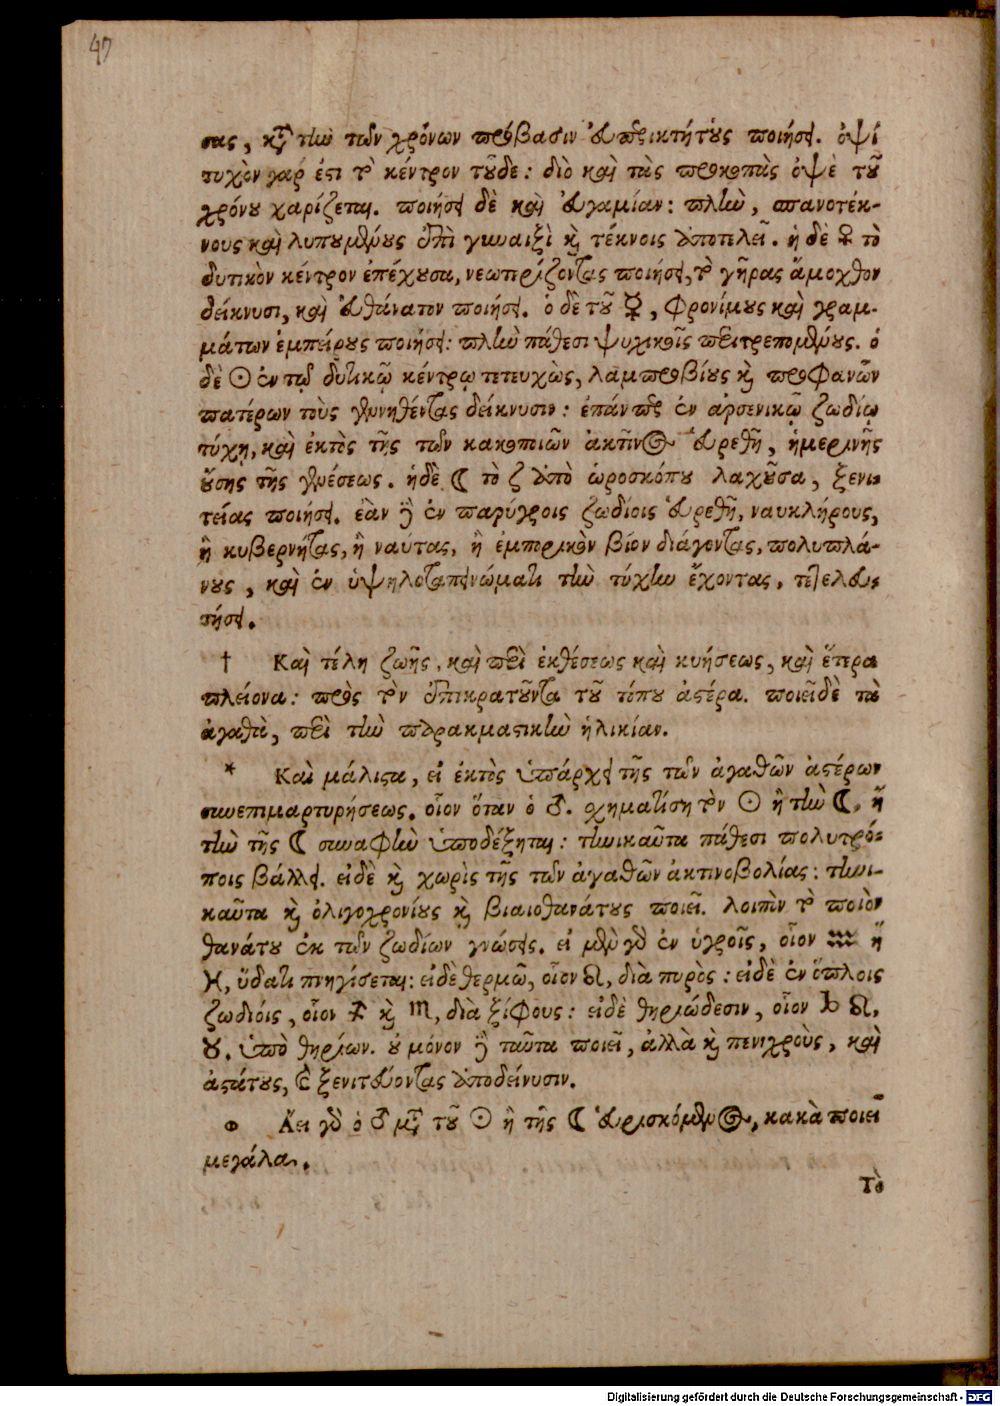 47
σας, κατὰ τὴν τῶν χρόνων πρόβασιν εὐπερικτήτους ποιήσει. ὀψί
τυχὸν γάρ ἐστι τὸ κέντρον τοῦδε: διὸ καὶ τὰς προκοπὰς ὀψὲ τοῦ
χρόνου χαρίζεται. ποιήσει δὲ καὶ εὐγαμίαν: πλὴν, σπανοτέκ-
νους καὶ λυπουμένους ἐπὶ γυναιξὶ καὶ τέκνοις ἀποτελεῖ. ἡ δὲ ♀ τὸ
δυτικὸν κέντρον ἐπέχουσα, νεωτερίζοντας ποιήσει, τὸ γῆρας ἄμοχθον
δείκνυσι, καὶ εὐθάνατον ποιήσει. ὁ δὲ τοῦ ☿, φρονίμους καὶ γραμ-
μάτων ἐμπείρους ποιήσει: πλὴν πάθεσι ψυχικοῖς περιτρεπομένους. ὁ
δὲ ☉ ἐν τῷ δυτικῷ κέντρῳ τετευχὼς, λαμπροβίους καὶ προφανῶν
πατέρων τοὺς γεννηθέντας δείκνυσιν: ἐπάν περ ἐν ἀρσενικῷ ζωδίῳ
τύχῃ, καὶ ἐκτὸς τῆς τῶν κακοποιῶν ἀκτῖνος εὑρεθῇ, ἡμερινῆς
οὔσης τῆς γενέσεως. ἡ δὲ ☾ τὸ ζ ἀπὸ ὡροσκόπου λαχοῦσα, ξενι-
τείας ποιήσει. ἐὰν δὲ ἐν παρύγροις ζωδίοις εὑρεθῇ, ναυκλήρους,
ἢ κυβερνήτας, ἢ ναύτας, ἢ ἐμπορικὸν βίον διάγοντας, πολυπλά-
νους, καὶ ἐν ὑψηλοταπεινώματι τὴν τύχην ἔχοντας, τελευ-
τήσει.
† Καὶ τέλη ζωῆς, καὶ περὶ ἐκθέσεως καὶ κυήσεως, καὶ ἕτερα
πλείονα: πρὸς τὸν ἐπικρατοῦντα τοῦ τόπου ἀστέρα. ποιεῖ δὲ τὰ
ἀγαθὰ, περὶ τὴν παρακμαστικὴν ἡλικίαν.
* Καὶ μάλιστα, εἰ ἐκτὸς ὑπάρχει τῆς τῶν ἀγαθῶν ἀστέρων
συνεπιμαρτυρήσεως. οἷον ὅταν ὁ ♂. σχηματίσῃ τὸν ☉ ἢ τὴν ☾, ἢ
τὴν τῆς ☾ συναφὴν ὑποδέξηται: τηνικαῦτα πάθεσι πολυτρό-
ποις βάλλει. εἰ δὲ καὶ χωρὶς τῆς τῶν ἀγαθῶν ἀκτινοβολίας: τηνι-
καῦτα καὶ ὀλιγοχρονίους καὶ βιαιοθανάτους ποιεῖ. λοιπὸν τὸ ποιὸν
θανάτου ἐκ τῶν ζωδίων γνώσεις. εἰ μὲν γὰρ ἐν ὑγροῖς, οἷον ♒ ἢ
♓, ὕδατι πνηγίσεται: εἰ δὲ θερμῶ, οἷον ♌, διὰ πυρὸς: εἰ δὲ ἐν ὅπλοις
ζωδίοις, οἷον ♐ καὶ ♏, διὰ ξίφους: εἰ δὲ θηριώδεσιν, οἷον ♑ ♌,
♉. ὑπὸ θηρίων. οὐ μόνον δὲ ταῦτα ποιεῖ, ἀλλὰ καὶ πενιχροὺς, καὶ
ἀστάτους, καὶ ξενιτεύοντας ἀποδείνυσιν.
ⲫ Ἄει γὰρ ὁ ♂ μετὰ τοῦ ☉ ἢ τῆς ☾ εὑρισκόμενος, κακὰ ποιεῖ
μεγάλα.
Τὸ
Digitalisierung gefördert durch die Deutsche Forschungsgemeinschaft - DFG